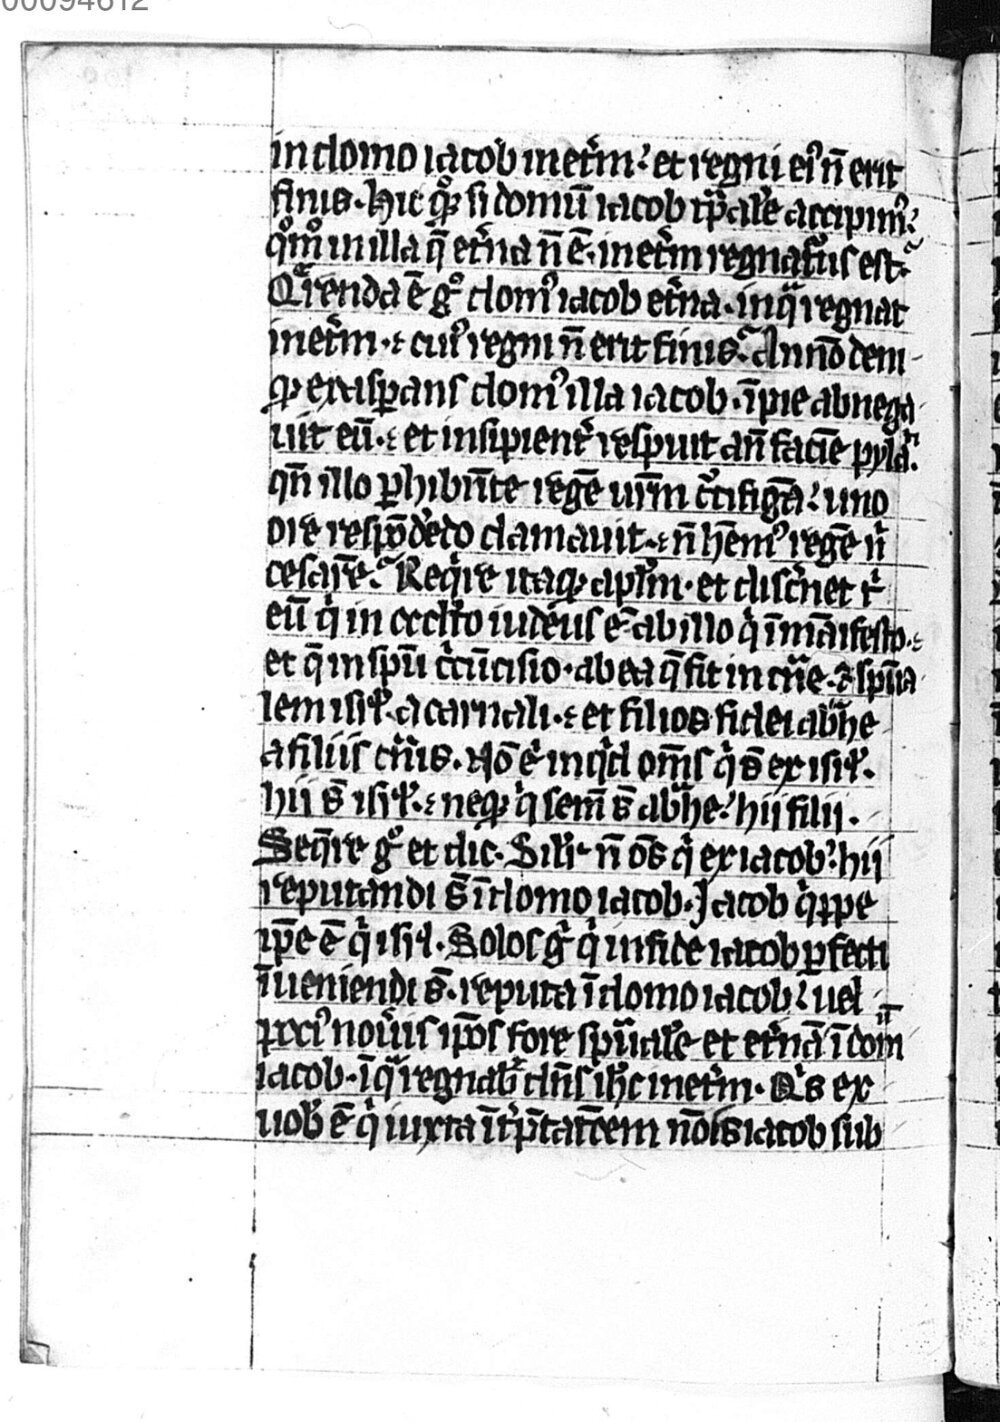 00094612
in domo iacob inet̾m. et regni ei᷒ n̄ erit
finis. Hic q̊ꝫ si domū iacob tp̄al̾e accipim᷒.
q̊m̊ in illa q̄ et̾na n̄ ē. inet̾m regnatur᷒ est.
Q̾renda ē gͦ dom᷒ iacob et̾na. in qᷓ regnat
inet̾m. ⁊ cui᷒ regni n̄ erit finis. Annō deni
qꝫ exasꝑans dom᷒ illa iacob. īpie abnega
uit eū. ⁊ et insipient̾ respuit an̄ faciē pylati.
qn̄ illo ꝑhibn̄te regē ur̄m c̾cifigā. uno
ore respōdēdo clamauit. n̄ hēm᷒ regē n̾
cesarē. Req̾re itaqꝫ apl̄m. et disc̾net t̾
eū qͥ in occl̾to iudeus ē. ab illo qͥ ī manifesto.
et q̄ in sp̄u c̾cūcisio. ab ea q̄ fit in carne. sp̄ua
lem isrl̾. a carnali. et filios fidei abrahe
a filiis carnis. Nō eī inqͥd om̄s qͥ s̄ ex isrl̾.
hii s̄ isrl̾. neqꝫ qͥ semē s̄ abrahe. hii filii.
Seq̄re gͦ et dic. Sil̾r n̄ om̄s qͥ ex iacob. hii
reputandi s̄ ī domo iacob. Iacob qͥppe
ip̄e ē qͥ isrl̾. Solos gͦ qͥ in fide iacob ꝑfecti
īueniendi s̄. reputa ī domo iacob. uel
poci᷒ nou̾is ip̄os fore sp̄uale et et̾nā dom̄
iacob. ī qᷓ regnabit dn̄s ih̄c inet̾m. Qͥs ex
uob̾ ē qͥ iuxta īt̾p̄tatōem nōis iacob sub